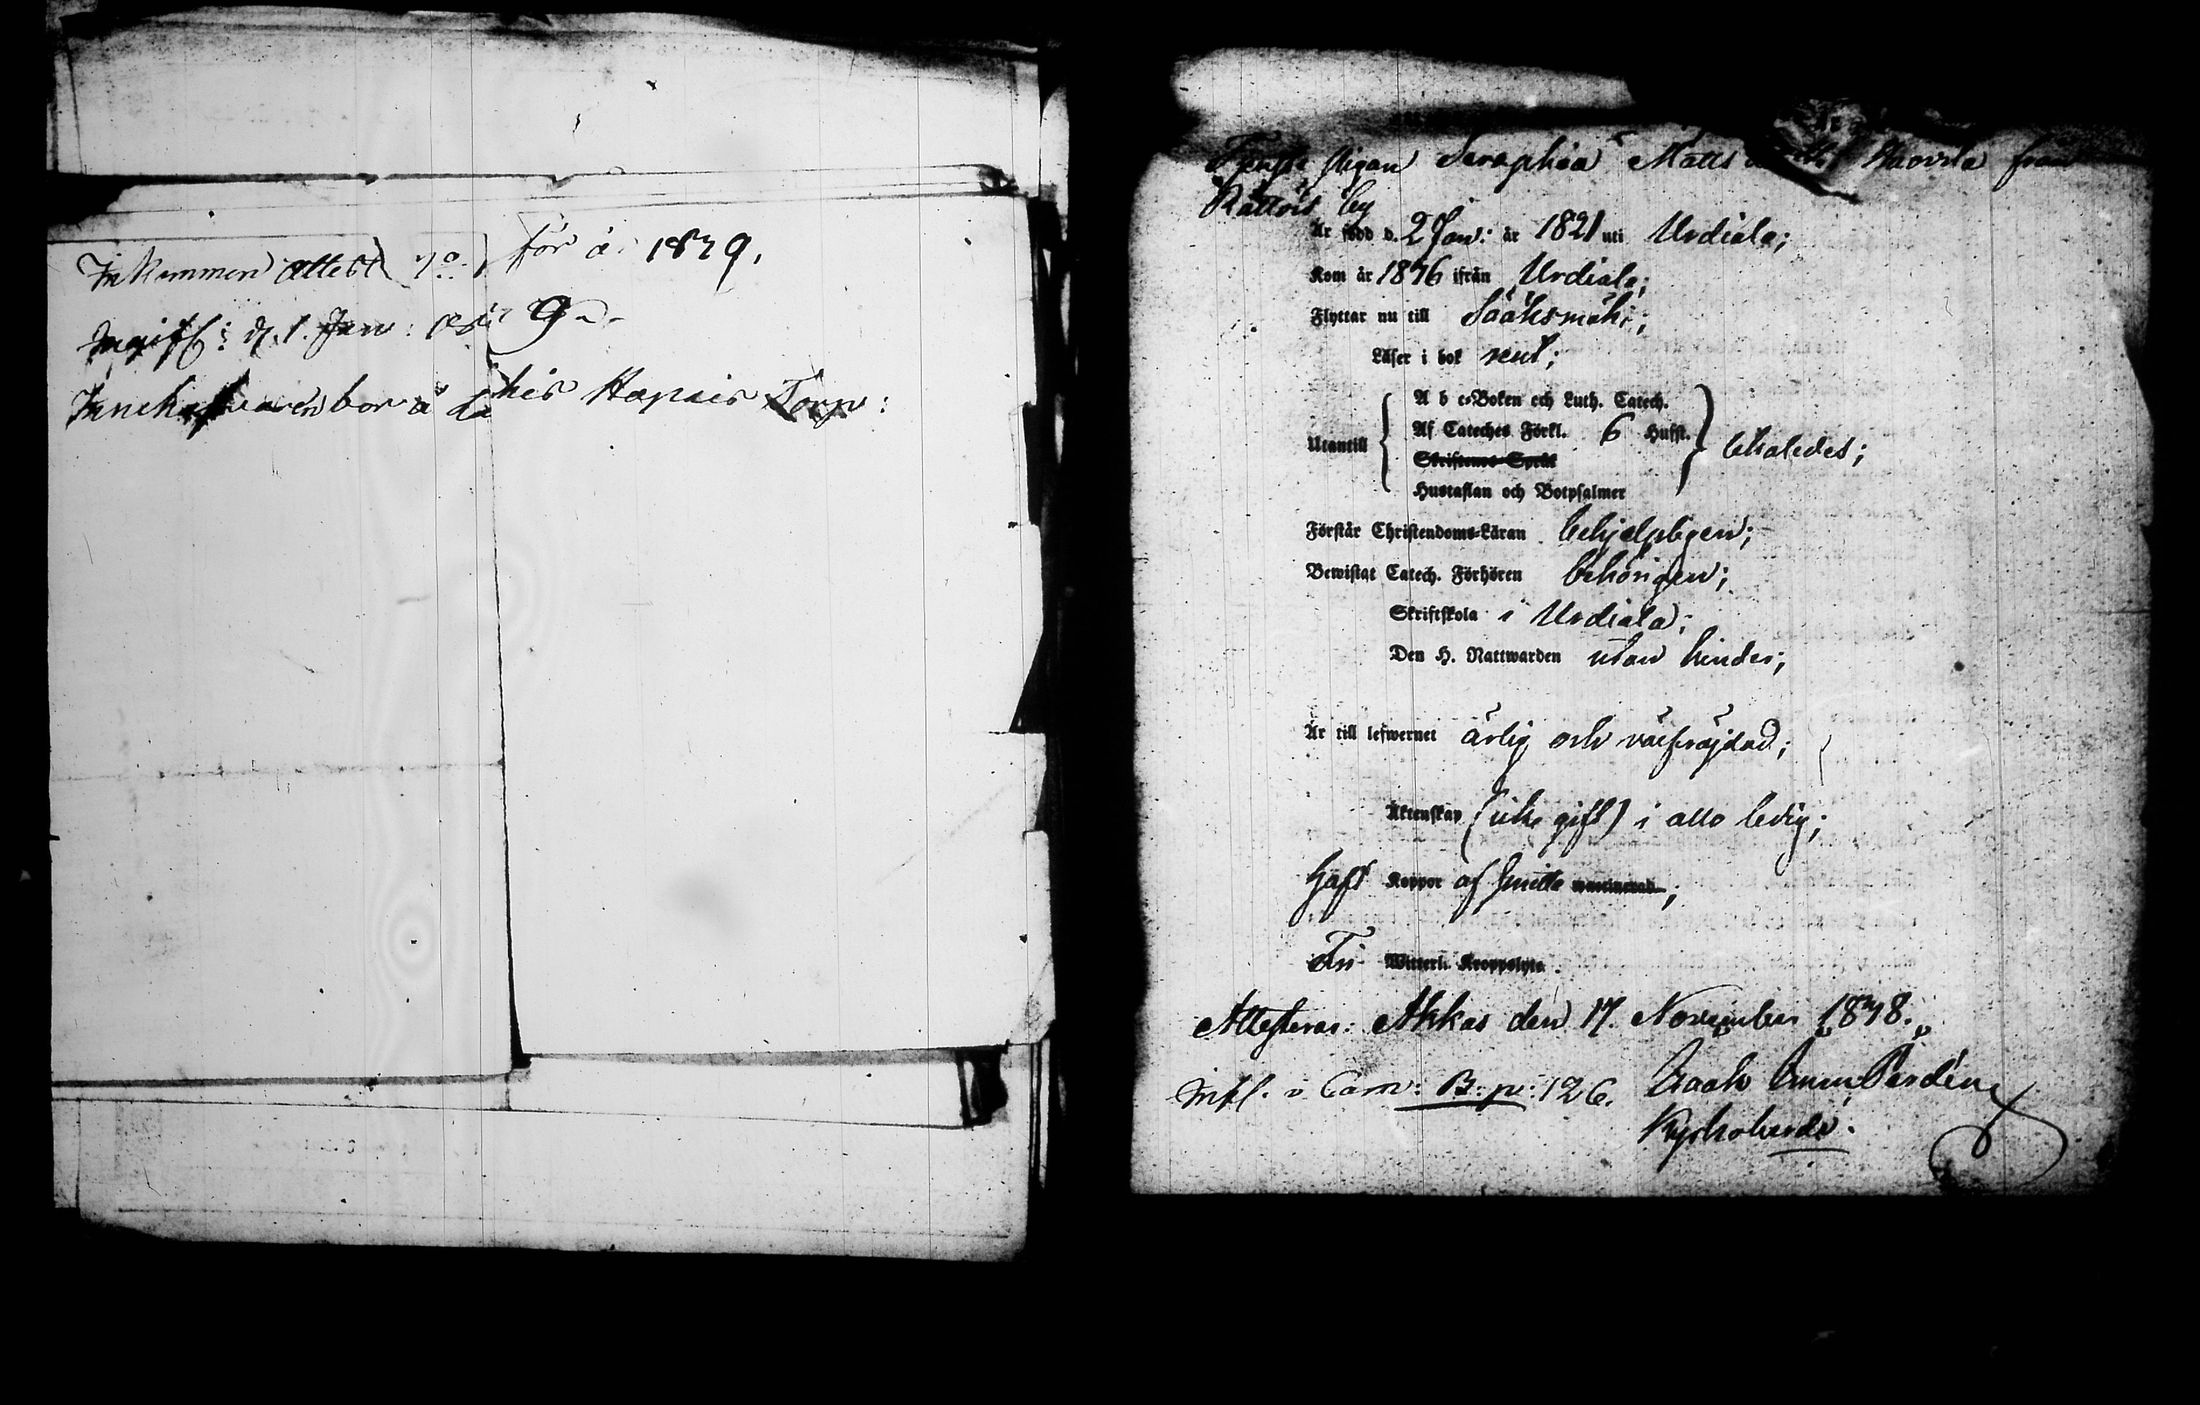 Inkommen attest
för år 1849.
Ingift: d. 1. Jan:
Innehafvaren bor å
Torp:
pigan Seraphia Matts från
by
Är född d. 2 Jan: år 1821 uti Urdiala;
Kom år 1846 ifrån Urdiala;
Flyttar nu till Sääksmäki;
Läser i bok rent;
A b c-Boken och Luth. Catech.
Utantill Af Cateches Förkl. 6 Hufst.
Skriftenes Språk
Hustaflan och Botpsalmer
Förstår Christendoms-Läran behjelpligen;
Bewistat Catech. Förhören behörigen;
Skriftskola i Urdiala;
Den H. Nattwarden utan hinder;
Är till lefwernet ärlig och välfräjdad;
Äktenskap (icke gift) i allo ledig;
Haft Koppor af
Fri Witterl. Kroppslyte.
Attesteras: Akkas den 17. November 1848.
B: p: 126.
Kyrkoherde.